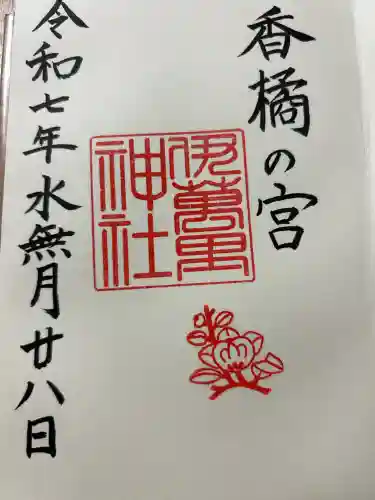 香橘の宮
伊萬里
神社
令和七年水無月廿八日